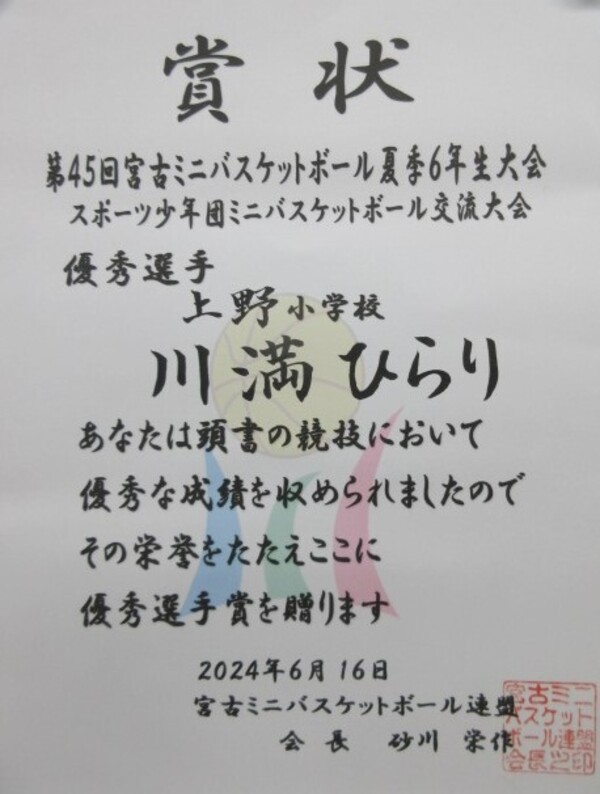 賞状
第45回宮古ミニバスケットボール夏季6年生大会
スポーツ少年団ミニバスケットボール交流大会
優秀選手
上野小学校
川満ひらり
あなたは頭書の競技において
優秀な成績を収められましたので
その栄誉をたたえここに
優秀選手賞を贈ります
2024年6月16日
宮古ミニバスケットボール連盟
会長 砂川 栄作
宮古ミニ
バスケット
ボール連盟
会長之印